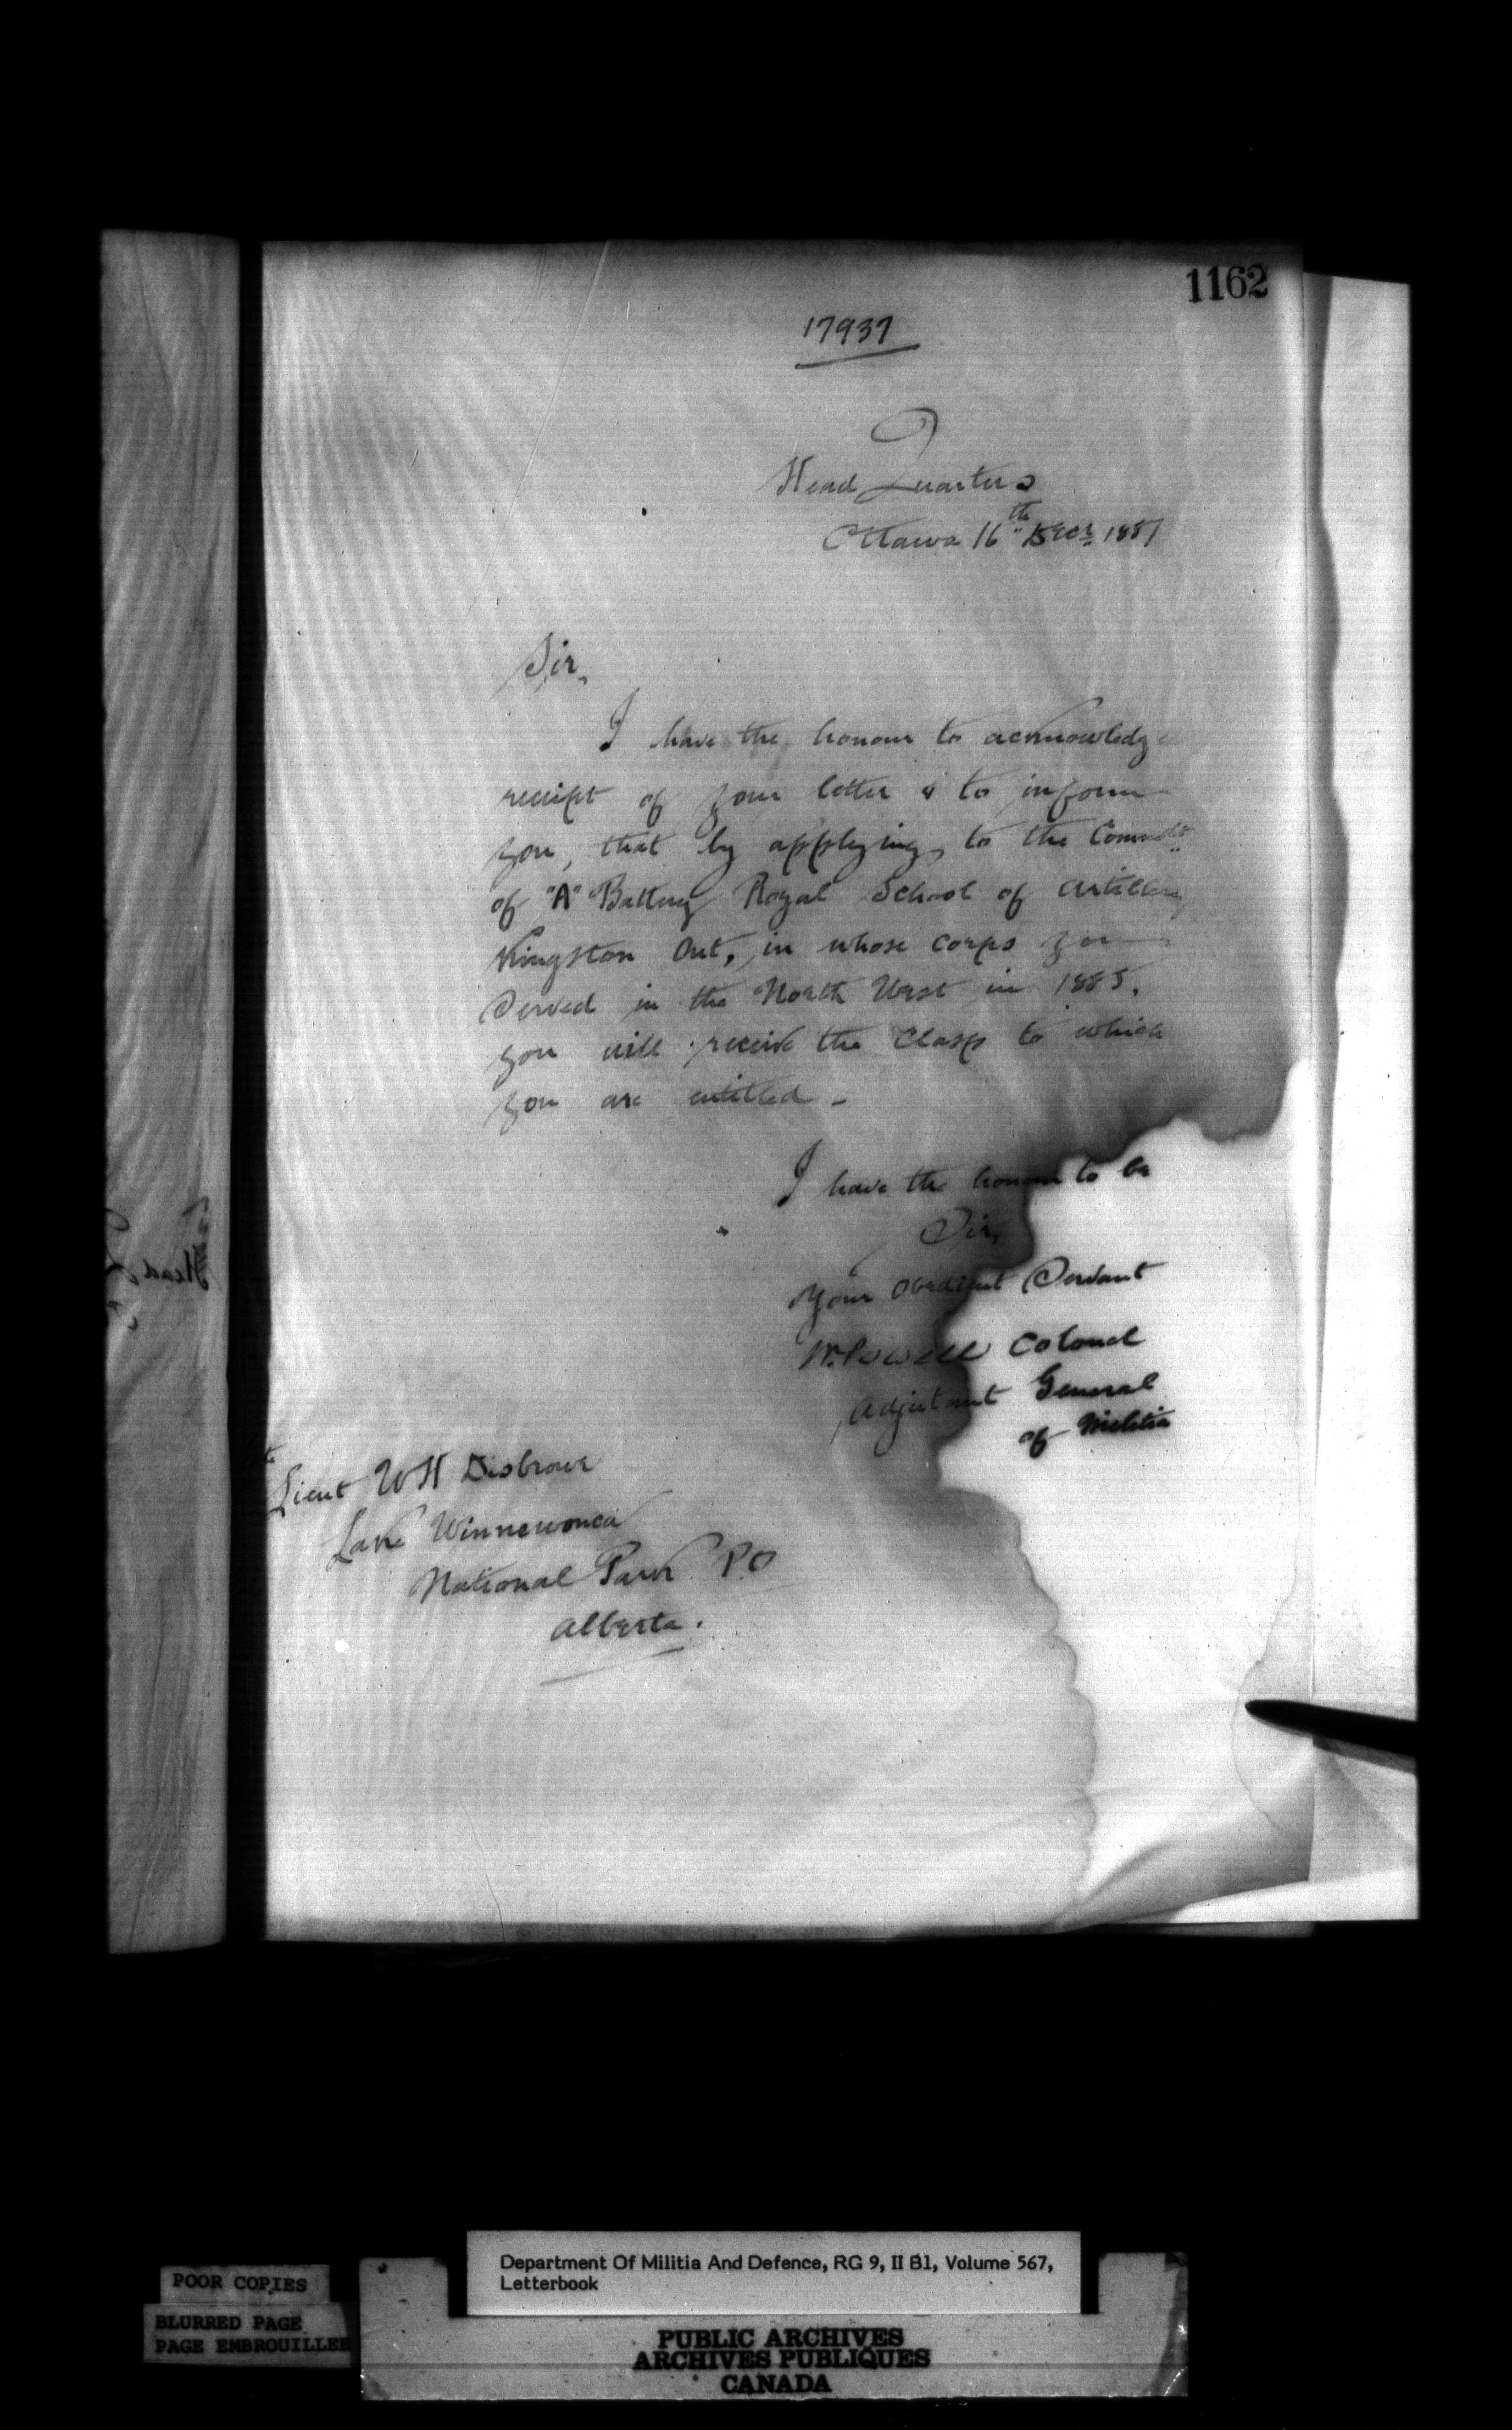 1162
17937
Head Quarters
Ottawa 16th Decr 1887
Sir,
I have the honour to acknowledge
receipt of your letter & to inform
you, that by applying to the Commdt
of "A" Battery Royal School of Artillery
Kingston Ont, in whose corps you
served in the North West in 1885,
you will receive the Clasp to which
you are entitled -
I have the honour to be
Sir,
Your Obedient Servant
W. Powell Colonel
Adjutant General
of Militia
Lieut W H Disbrowe
Lake Winnewonca
National Park P.O
Alberta.
Head
Department Of Militia And Defence, RG 9, II B1, Volume 567,
Letterbook
POOR COPIES
BLURRED PAGE
PAGE EMBROUILLEE
PUBLIC ARCHIVES
ARCHIVES PUBLIQUES
CANADA